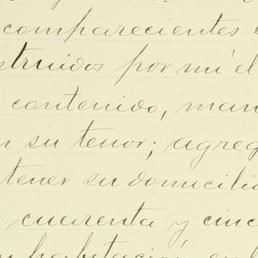 comparecientes
struidos por mí el
contenido, man
su tenor; agreg
tener su domicilio
cuarenta y cinc
habitación